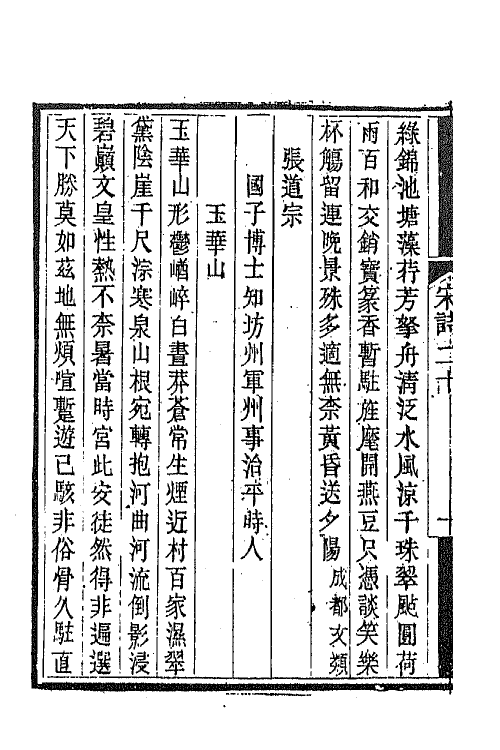 綠錦池塘藻荇芳拏舟清泛水風涼千珠翠颭圓荷
雨百和交銷寶篆香暫駐旌麾開燕豆只憑談笑樂
杯觴留連晚景殊多適無柰黃昏送夕陽成都文類
張道宗
國子博士知坊州軍州事治平時人
玉華山
玉華山形鬱崷崪白晝莽蒼常生煙近村百家濕翠
黛陰崖千尺淙寒泉山根宛轉抱河曲河流倒影浸
碧巔文皇性熱不柰暑當時宮此安徒然得非遍選
天下勝莫如茲地無煩喧蹔遊已駭非俗骨久駐直
宋詩二十
一